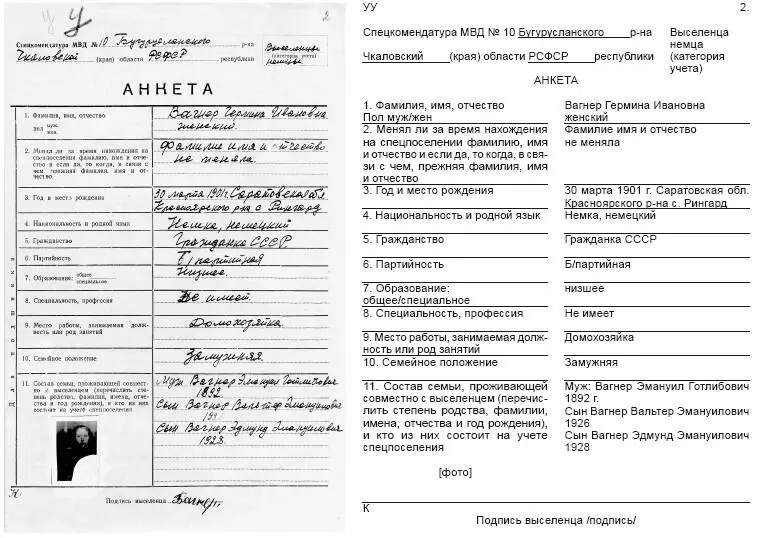 у У
2
Спецкомендатура МВД № 10 Бугурусланского р-на
Чкаловской (края) области РСФСР республики
Выселенца
(категория учета)
АНКЕТА
1. Фамилия, имя, отчество
пол муж. жен.
Вагнер Гермина Ивановна
женский.
2. Менял ли за время нахождения на
спецпоселении фамилию, имя и отче-
ство и если да, то когда, в связи с
чем, прежняя фамилия, имя и от-
чество.
Фамилие имя и отчество
не меняла.
3. Год и место рождения
30 марта 1901 г. Саратовская обл.
Красноярского р-на с Рингард
4. Национальность и родной язык
Немка, немецкий
5. Гражданство
Гражданка СССР.
6. Партийность
Б/партийная
7. Образование: общее
специальное
Низшее.
8. Специальность, профессия
Не имеет.
9. Место работы, занимаемая долж-
ность или род занятий
Домохозяйка.
10. Семейное положение
Замужняя
11. Состав семьи, проживающей совместно
с выселенцем (перечислить сте-
пень родства, фамилии, имена, отче-
ства и год рождения), и кто из них
состоит на учете спецпоселения
Муж Вагнер Эмануил Готлибович
1892
Сын Вагнер Вальтер Эмануилович
Сын Вагнер Эдмунд Эмануилович
1928.
Для подшивки
К
Подпись выселенца Вагнер
УУ 2.
Спецкомендатура МВД № 10 Бугурусланского р-на
Чкаловский (края) области РСФСР республики
Выселенца
немца
(категория
учета)
АНКЕТА
1. Фамилия, имя, отчество
Пол муж/жен
Вагнер Гермина Ивановна
женский
2. Менял ли за время нахождения
на спецпоселении фамилию, имя
и отчество и если да, то когда, в свя-
зи с чем, прежняя фамилия, имя
и отчество
Фамилие имя и отчество
не меняла
3. Год и место рождения
30 марта 1901 г. Саратовская обл.
Красноярского р-на с. Рингард
4. Национальность и родной язык
Немка, немецкий
5. Гражданство
Гражданка СССР
6. Партийность
Б/партийная
7. Образование:
общее/специальное
низшее
8. Специальность, профессия
Не имеет
9. Место работы, занимаемая долж-
ность или род занятий
Домохозяйка
10. Семейное положение
Замужняя
11. Состав семьи, проживающей
совместно с выселенцем (перечис-
лить степень родства, фамилии,
имена, отчества и год рождения),
и кто из них состоит на учете
спецпоселения
Муж: Вагнер Эмануил Готлибович
1892 г.
Сын Вагнер Вальтер Эмануилович
1926
Сын Вагнер Эдмунд Эмануилович
1928
[фото]
К
Подпись выселенца /подпись/